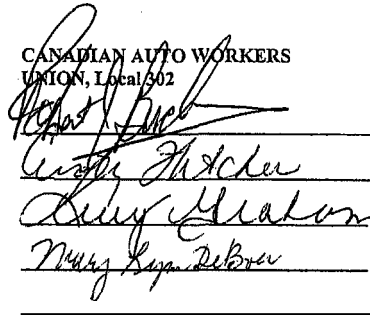 CANADIAN AUTO WORKERS
UNION, Local 302
Robert
Fletcher
Graham
Mary Lynn DeBoer